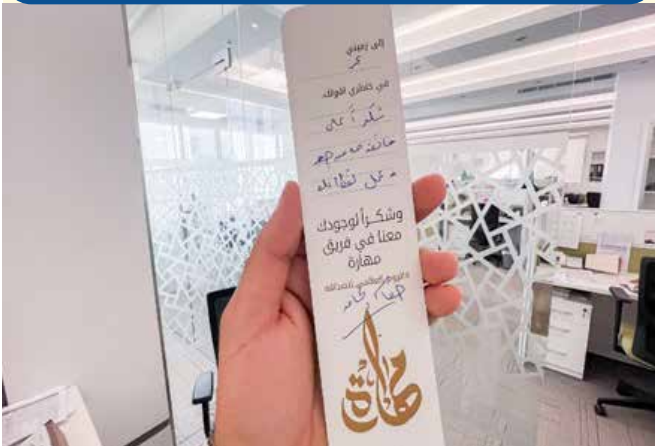 إلى زميلي
في خاطري أقولك
شكراً على
ما تقدمه من جهد
وشكـراً لوجودك
معنا في فريق
مهارة
#اليوم_العالمي_للصداقة
مهارة